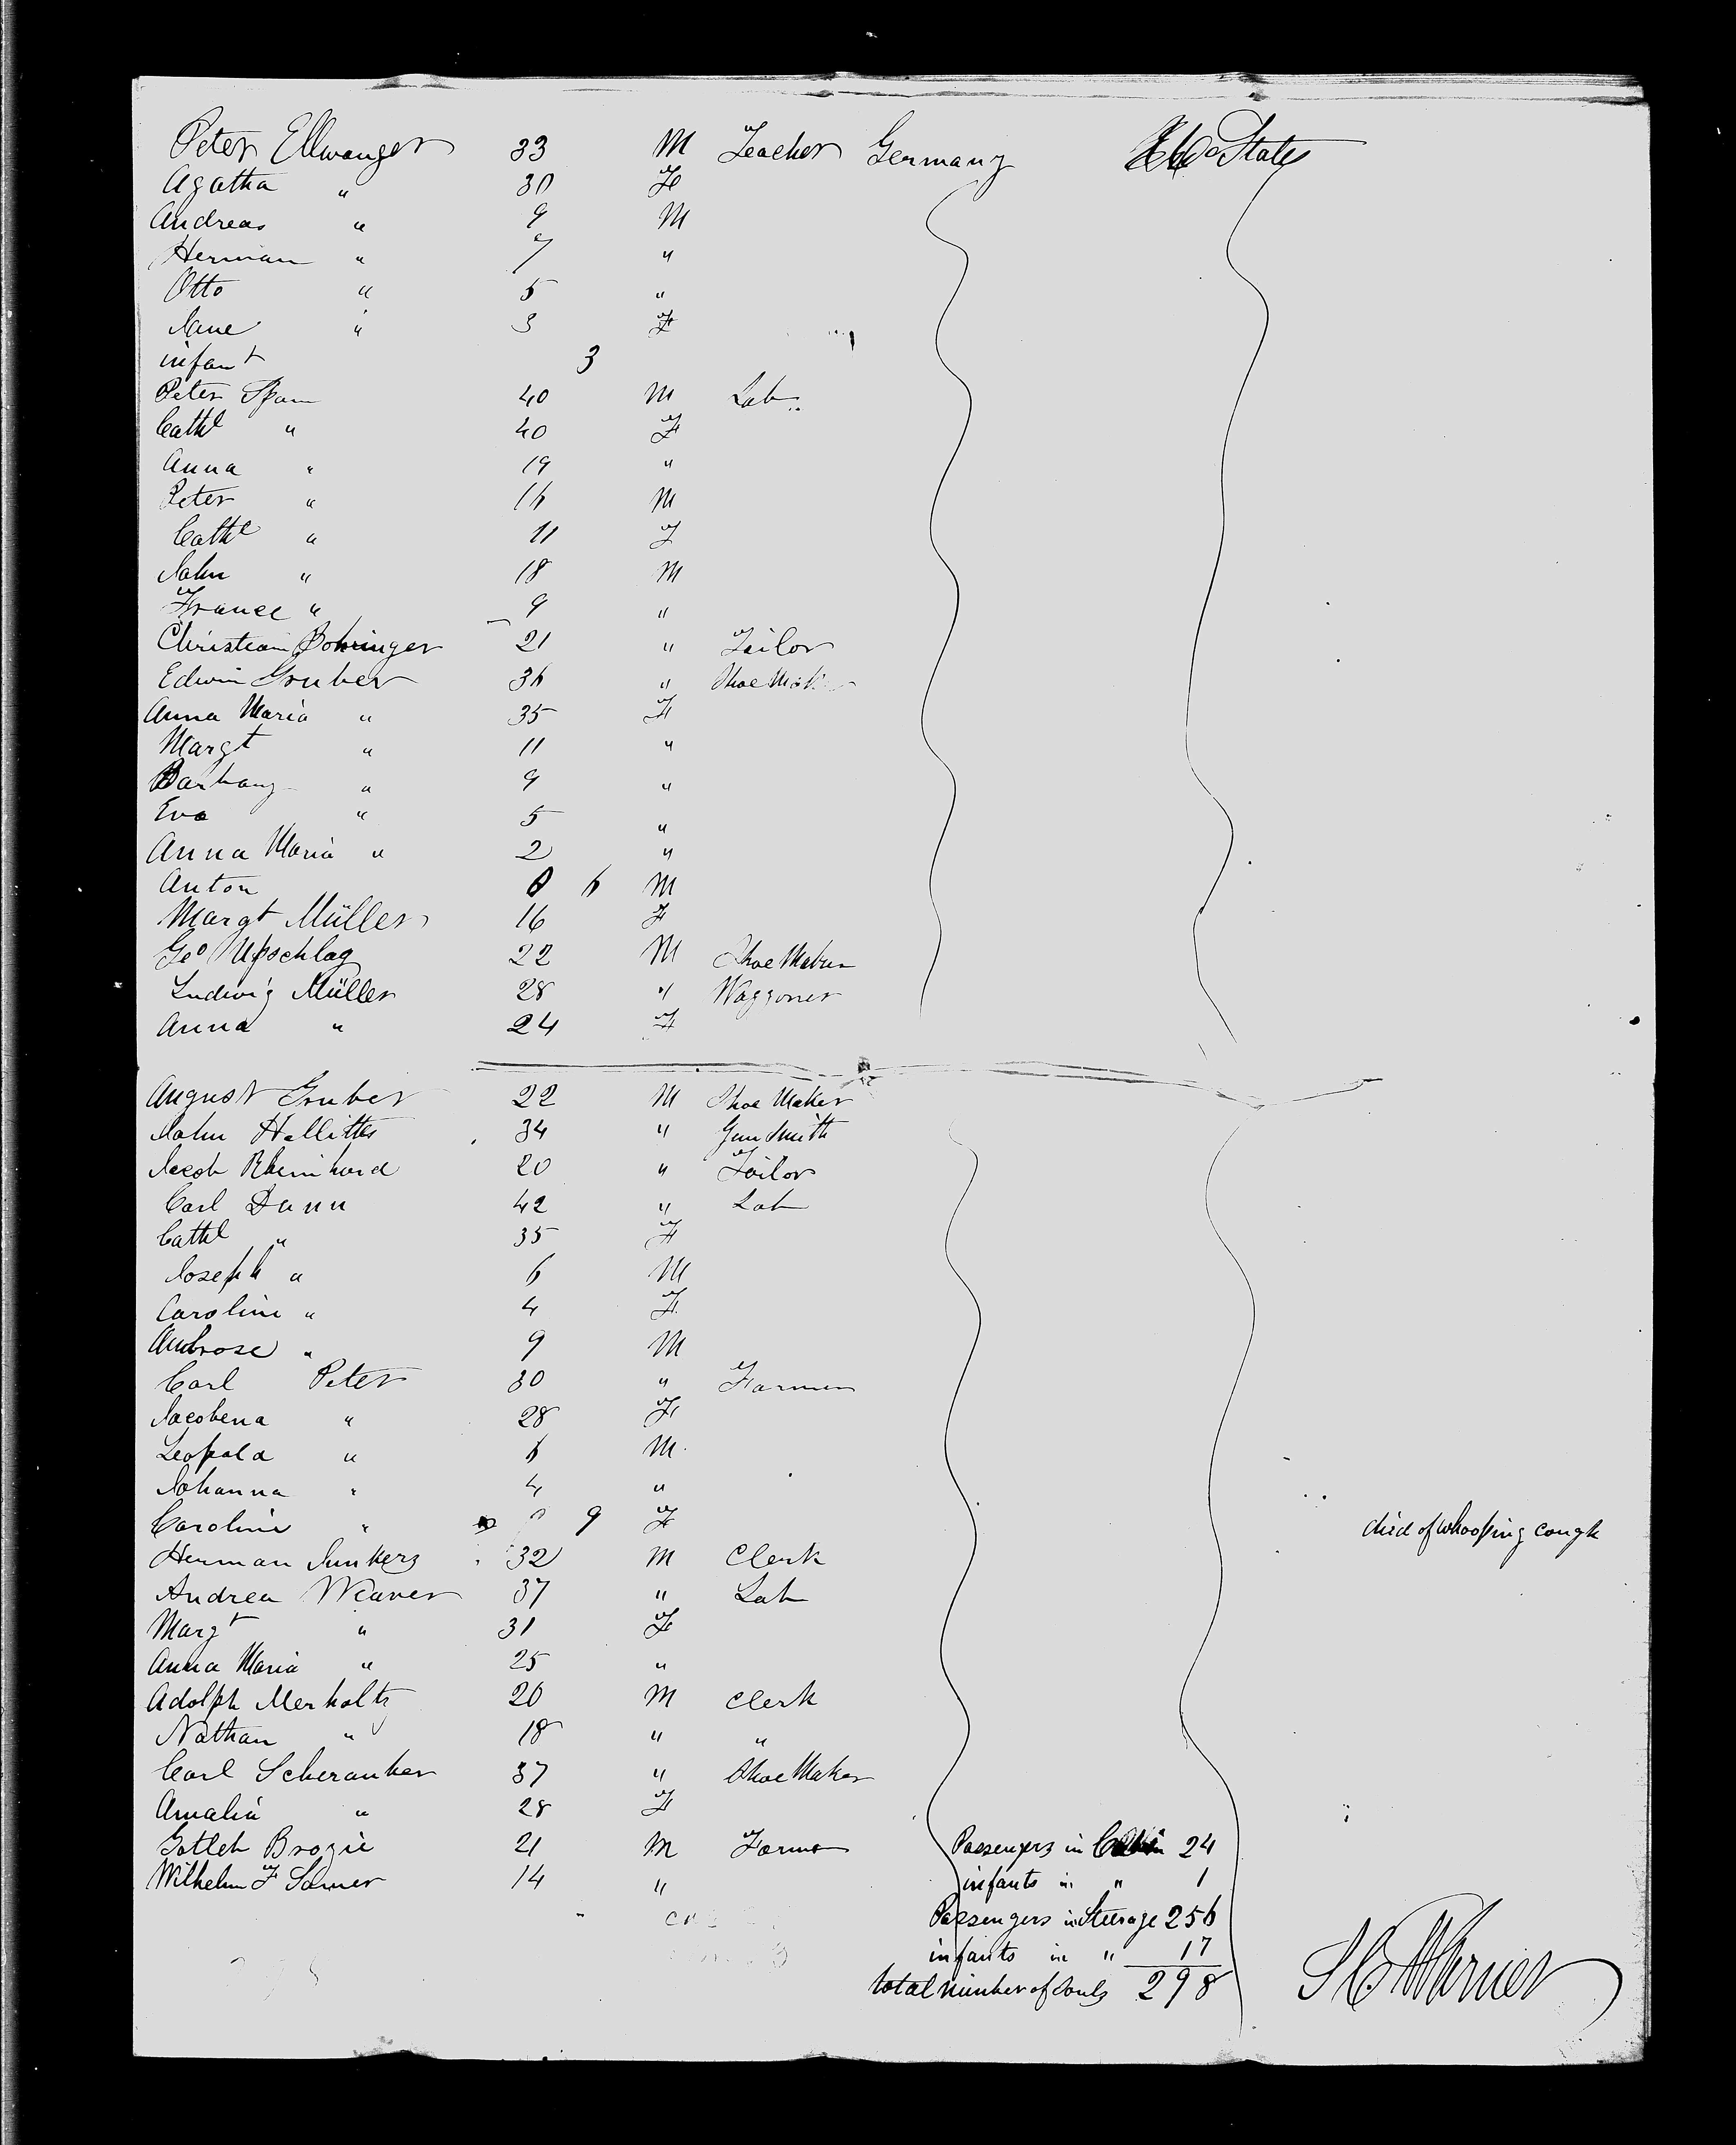 Peter Ellwanger 33 M Teacher Germany States
Agatha " 30 F
Andreas " 9 M
Herman " 7 "
Otto " 5 "
Jane " 3 F
infant 3
Peter Spam 40 M Lab
Cathe " 40 F
Anna " 19 "
Peter " 16 M
Cathe " 11 F
John " 18 M
France " 9 "
Christian Bohringer 21 " Tailor
Edwin Gruber 36 " Shoe Maker
Anna Maria " 35 F
Margt " 11 "
Barbany " 9 "
Eva " 5 "
Anna Maria " 2 "
Anton 0 6 M
Margt Müller 16 F
Geo Upschlag 22 M Shoe Maker
Ludwig Müller 28 " Waggoner
Anna " 24 F
August Gruber 22 M Shoe Maker
John Hellittes 34 " Gun Smith
Jacob Rheinhard 20 " Tailor
Carl Dann 42 " Lab
Cathe " 35 F
Joseph " 6 M
Caroline " 4 F
Ambrose " 9 M
Carl Peter 30 " Farmer
Jacobena " 28 F
Leopold " 6 M
Johanna " 4 "
Caroline " 9 F died of whooping cough
Herman Junkers 32 M Clerk
Andrea Weaver 37 " Lab
Margt " 31 F
Anna Maria " 25 "
Adolph Merholtz 20 M Clerk
Nathan " 18 " "
Carl Scherauber 37 " Shoe Maker
Amalia " 28 F
Gotleb Brozie 21 M Farmer Passengers in Cabin 24
Wilhelm F Sawer 14 " infants in " 1
Passengers in Steerage 256
infants in " 17
total number of souls 298